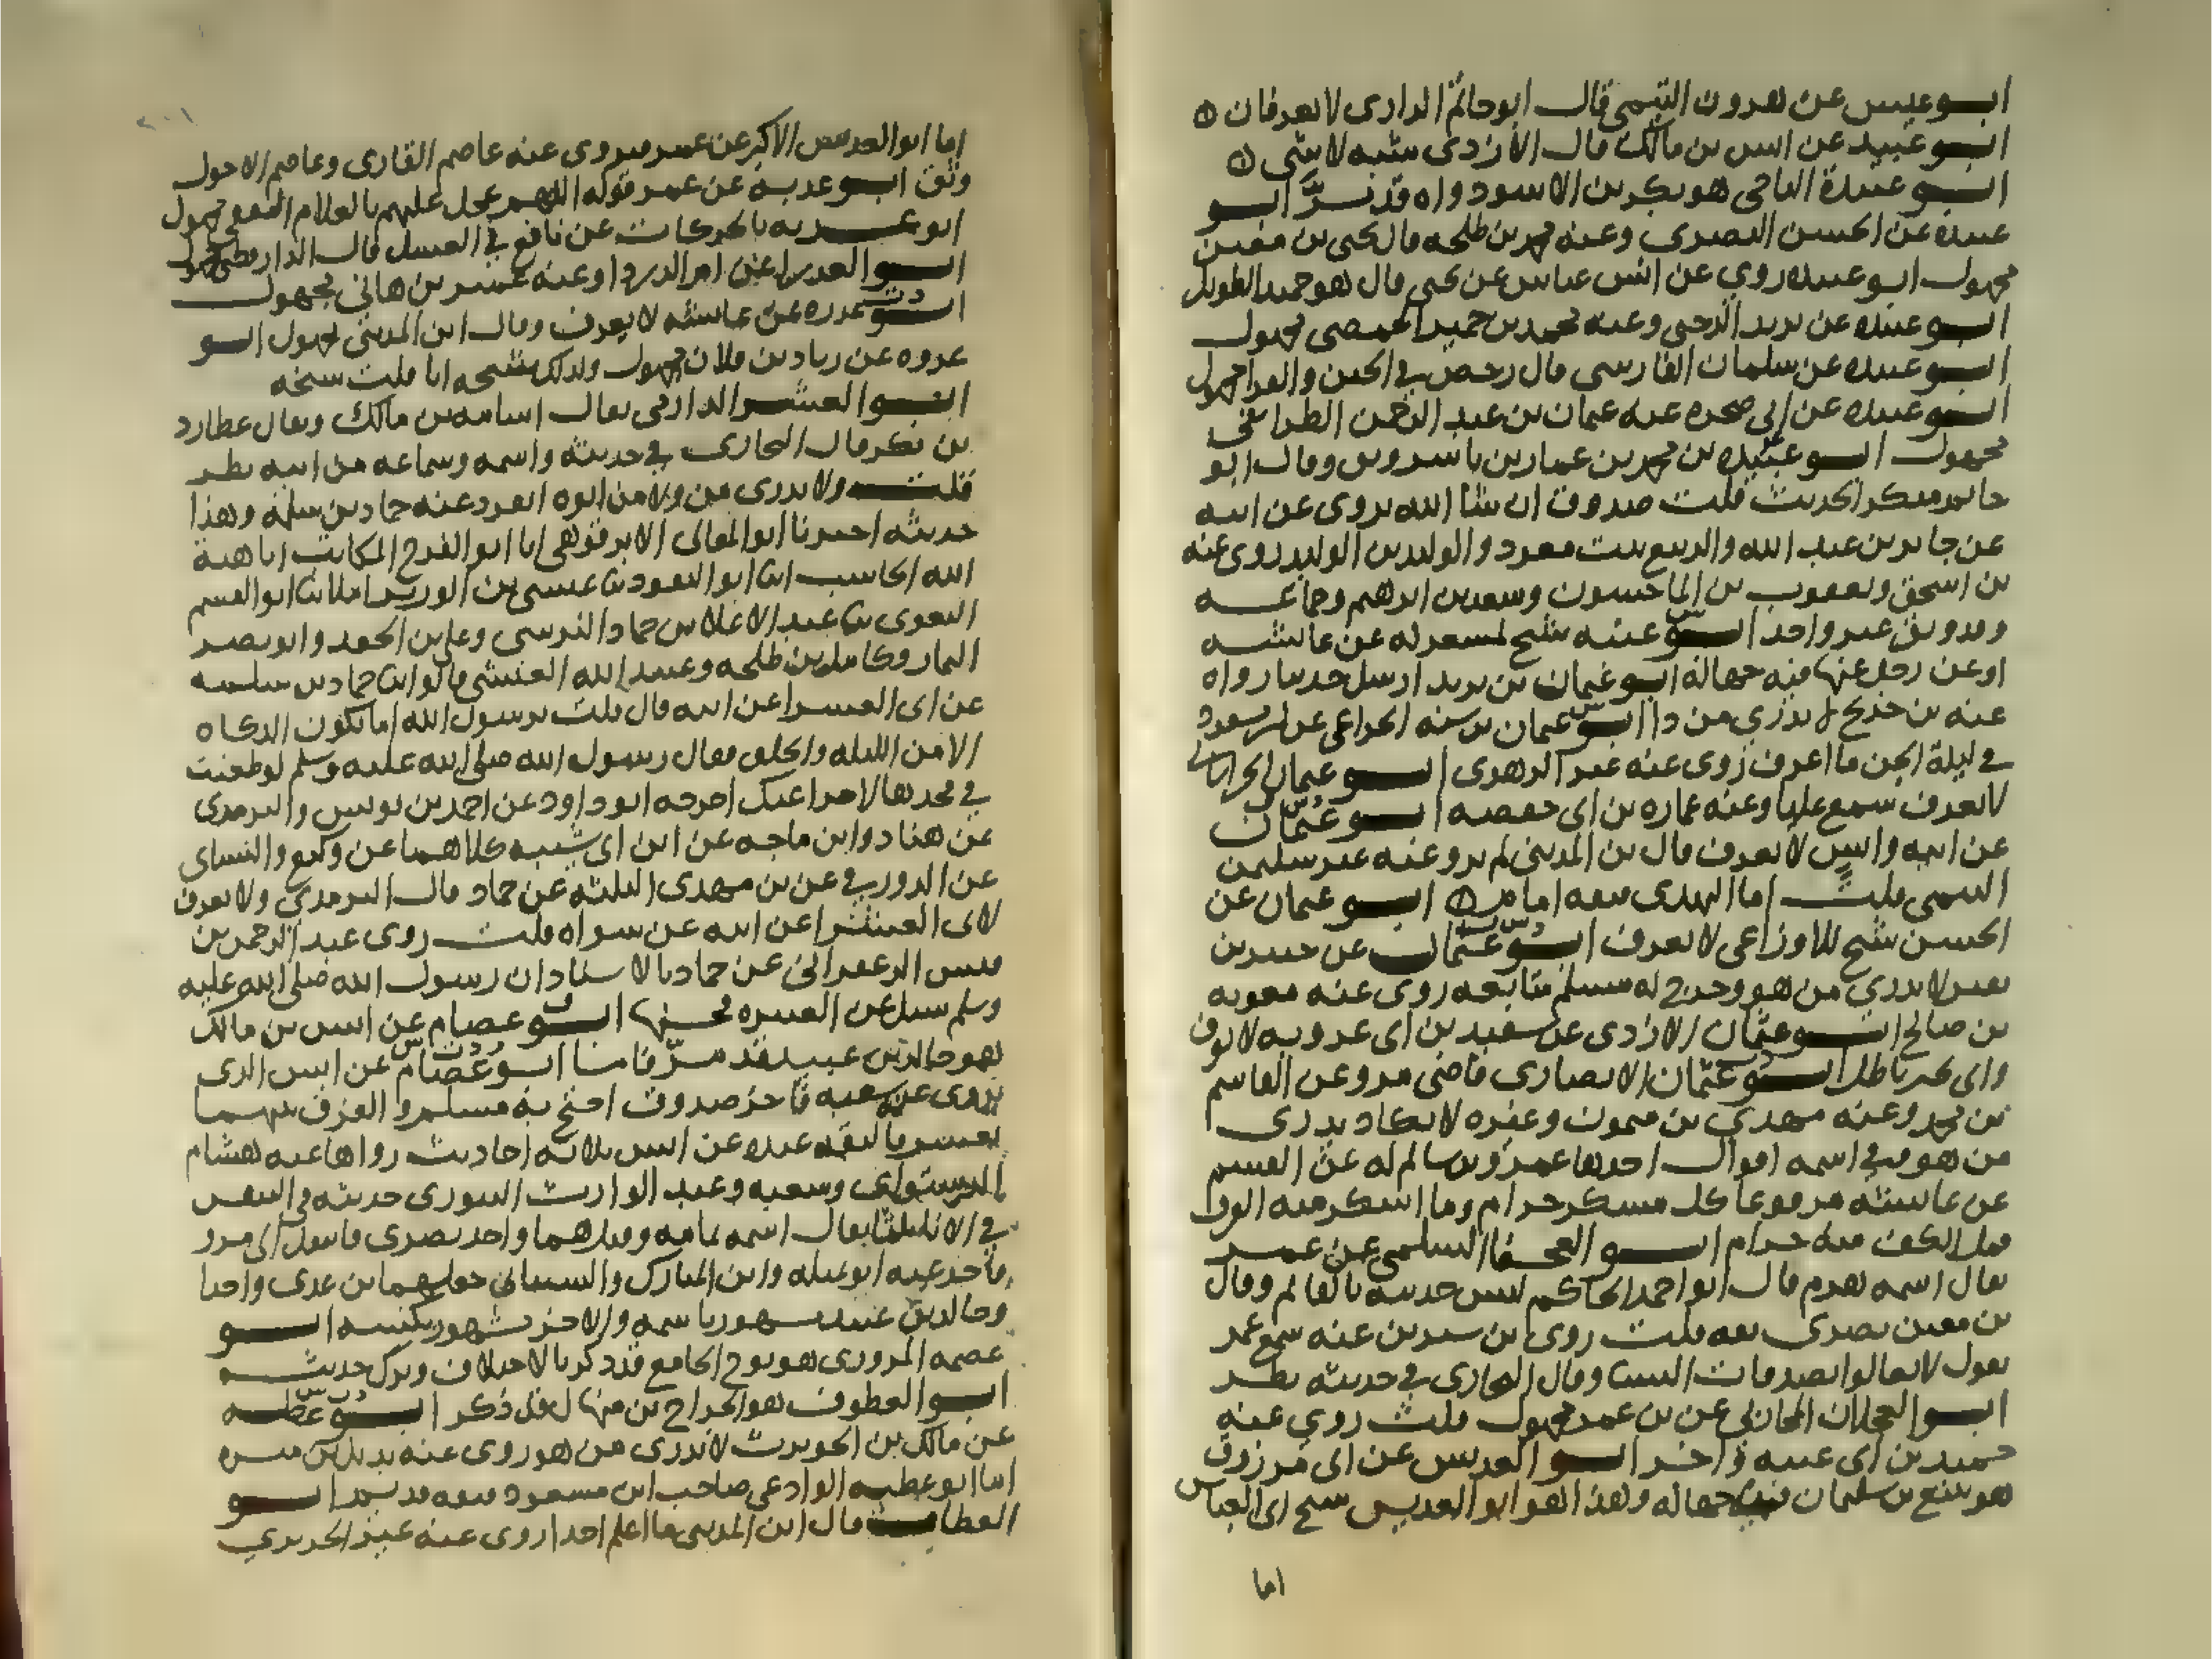 ابو عبس عن هرون التيمى قال ابو حاتم الرازى لا يعرفان
ابو عبيد عن انس بن مالك قال الازدى شبه لا شى
ابو عبيدة الناجى هو بكر بن الاسود واه قد مرّ ابو
عبيدة عن الحسن البصرى وعنه محمد بن طلحه قال يحيى بن معين
مجهول ابو عبيده روى عن انس عباس عن يحيى قال هو حميد الطويل
ابو عبيده عن يزيد الرحبى وعنه محمد بن حمير الحمصى مجهول
ابو عبيده عن سلمان الفارسى قال رخص فى الجبن والفرا مجهول
ابو عبيده عن ابى صخره عنه عثمان بن عبد الرحمن الطرائفى
مجهول ابو عبيده بن محمد بن عمار بن ياسر وثق وقال ابو
حاتم منكر الحديث قلت صدوق ان شا الله يروى عن ابيه
عن جابر بن عبد الله والربيع بنت معوذ والوليد بن الوليد روى عنه
بن اسحق ويعقوب بن الماجشون وسعد بن ابرهيم وجماعه
وقد وثق غير واحد ابو عتبه شيخ لمسعر له عن عائشه
او عن رجل عنها فيه جهالة ابو عثمان بن يزيد ارسل حديثا رواه
عنه بن جريج لا يدرى من ذا ابو عثمان بن سنه الخزاعى عن ابن مسعود
فى ليلة الجن ما اعرف روى عنه غير الزهرى ابو عثمان الخراسانى
لا يعرف سمع عليا وعنه عماره بن ابى حفصه ابو عثمان
عن ابيه وانس لا يعرف قال بن المدينى لم يرو عنه غير سليمن
التيمى قلت اما النهدى فثقه امام ابو عثمان عن
الحسن شيخ للاوزاعى لا يعرف ابو عثمان عن جبير بن
نفير لا يدرى من هو وخرج له مسلم متابعه روى عنه معويه
بن صالح ابو عثمان الازدى عن سعيد بن ابى عروبه لا يعرف
واتى بخبر باطل ابو عثمان الانصارى قاضى مرو عن القاسم
بن محمد وعنه مهدى بن ميمون وغيره لا يكاد يدرى
من هو وفى اسمه اقوال احدها عمرو بن سالم له عن القسم
عن عائشه مرفوعا كل مسكر حرام وما اسكر منه الفرق
فمل الكف منه حرام ابو العجفا السلمى عن عمر
يقال اسمه هرم قال ابو احمد الحاكم ليس حديثه بالقائم وقال
بن معين بصرى ثقه قلت روى بن سيرين عنه سمع عمر
يقول لا تغالوا بصدقات النسا وقال البخارى فى حديثه نظر
ابو العجلان المحاربى عن بن عمر مجهول قلت روى عنه
حميد بن ابى غنيه واخر ابو العدبس عن ابى مرزوق
هو منيع بن سليمان فيه جهاله وهذا هو ابو العدبس شيخ ابى العنبس
اما
اما ابو العدبس الاكبر عن عمر فيروى عنه عاصم القارى وعاصم الاحول
وثق ابو عذبة عن عمر قوله اللهم عجل عليهم بالغلام الثقفى مجهول
ابو عذبه بالحركات عن نافع فى الغسل قال الدارقطنى مجهول
ابو العذرا عن ام الدردا وعنه عمير بن هانى مجهول
ابو عذره عن عائشه لا يعرف وقال ابن المدينى مجهول ابو
عروه عن زياد بن فلان مجهول وكذلك شيخه
ابو العشرا الدارمى يقال اسامه بن مالك ويقال عطارد
بن بكر قال البخارى فى حديثه واسمه وسماعه من ابيه نظر
قلت ولا يدرى من هو ولا من ابوه انفرد عنه حماد بن سلمة وهذا
حديثه اخبرنا ابو المعالى الابرقوهى انا ابو الفرج الكاتب انا هبة
الله الحاسب انا ابو الحسين بن النقور ثنا عيسى بن الوزير املا ثنا ابو القسم
البغوى ثنا عبد الاعلا بن حماد النرسى وعلى بن الجعد وابو نصر
التمار وكامل بن طلحه وعبيد الله العيشى قالوا ثنا حماد بن سلمه
عن ابى العشرا عن ابيه قال قلت يرسول الله اما تكون الذكاه
الا من اللبه والحلق فقال رسول الله صلى الله عليه وسلم لو طعنت
فى فخدها لاجزا عنك اخرجه ابو داود عن احمد بن يونس والترمذى
عن هناد وابن ماجه عن ابن ابى شيبه كلاهما عن وكيع والنساى
عن الدورقى عن بن مهدى الثلثه عن حماد قال الترمذى ولا يعرف
لابى العشرا عن ابيه غير سواه قلت روى عبد الرحمن بن
قيس الزعفرانى عن حماد بالاسناد ان رسول الله صلى الله عليه
وسلم سئل عن العتيره فحسنها ابو عصام عن انس بن مالك
هو خالد بن عبيد قد مرّ فاما ابو عصام عن انس الذى
يروى عنه شعبه فاخر صدوق احتج به مسلم والفرق بينهما
يعسر عن انس ثلاثه احاديث رواها عنه هشام
الدستوائى وشعبه وعبد الوارث التنورى حديثه فى التنفس
فى الانا ثلثا يقال اسمه ثمامه وقيل هما واحد بصرى فاتنقل الى مرو
فاخذ عنه ابو تميله وابن المبارك والسينانى جعلهما بن عدى واحدا
وخالد بن عبيد مشهور باسمه والاخر مشهور بكنيته ابو
عصمه المروزى هو نوح الجامع قد ذكر بالاختلاف وترك حديثه
ابو العطوف هو الجراح بن منهال قد ذكر ابو عطيه
عن مالك بن الحويرث لا يدرى من هو روى عنه بديل بن ميسره
اما ابو عطيه الوادعى صاحب ابن مسعود فثقه قديم ابو
العطاف قال ابن المدينى ما اعلم احدا روى عنه غير الجريرى